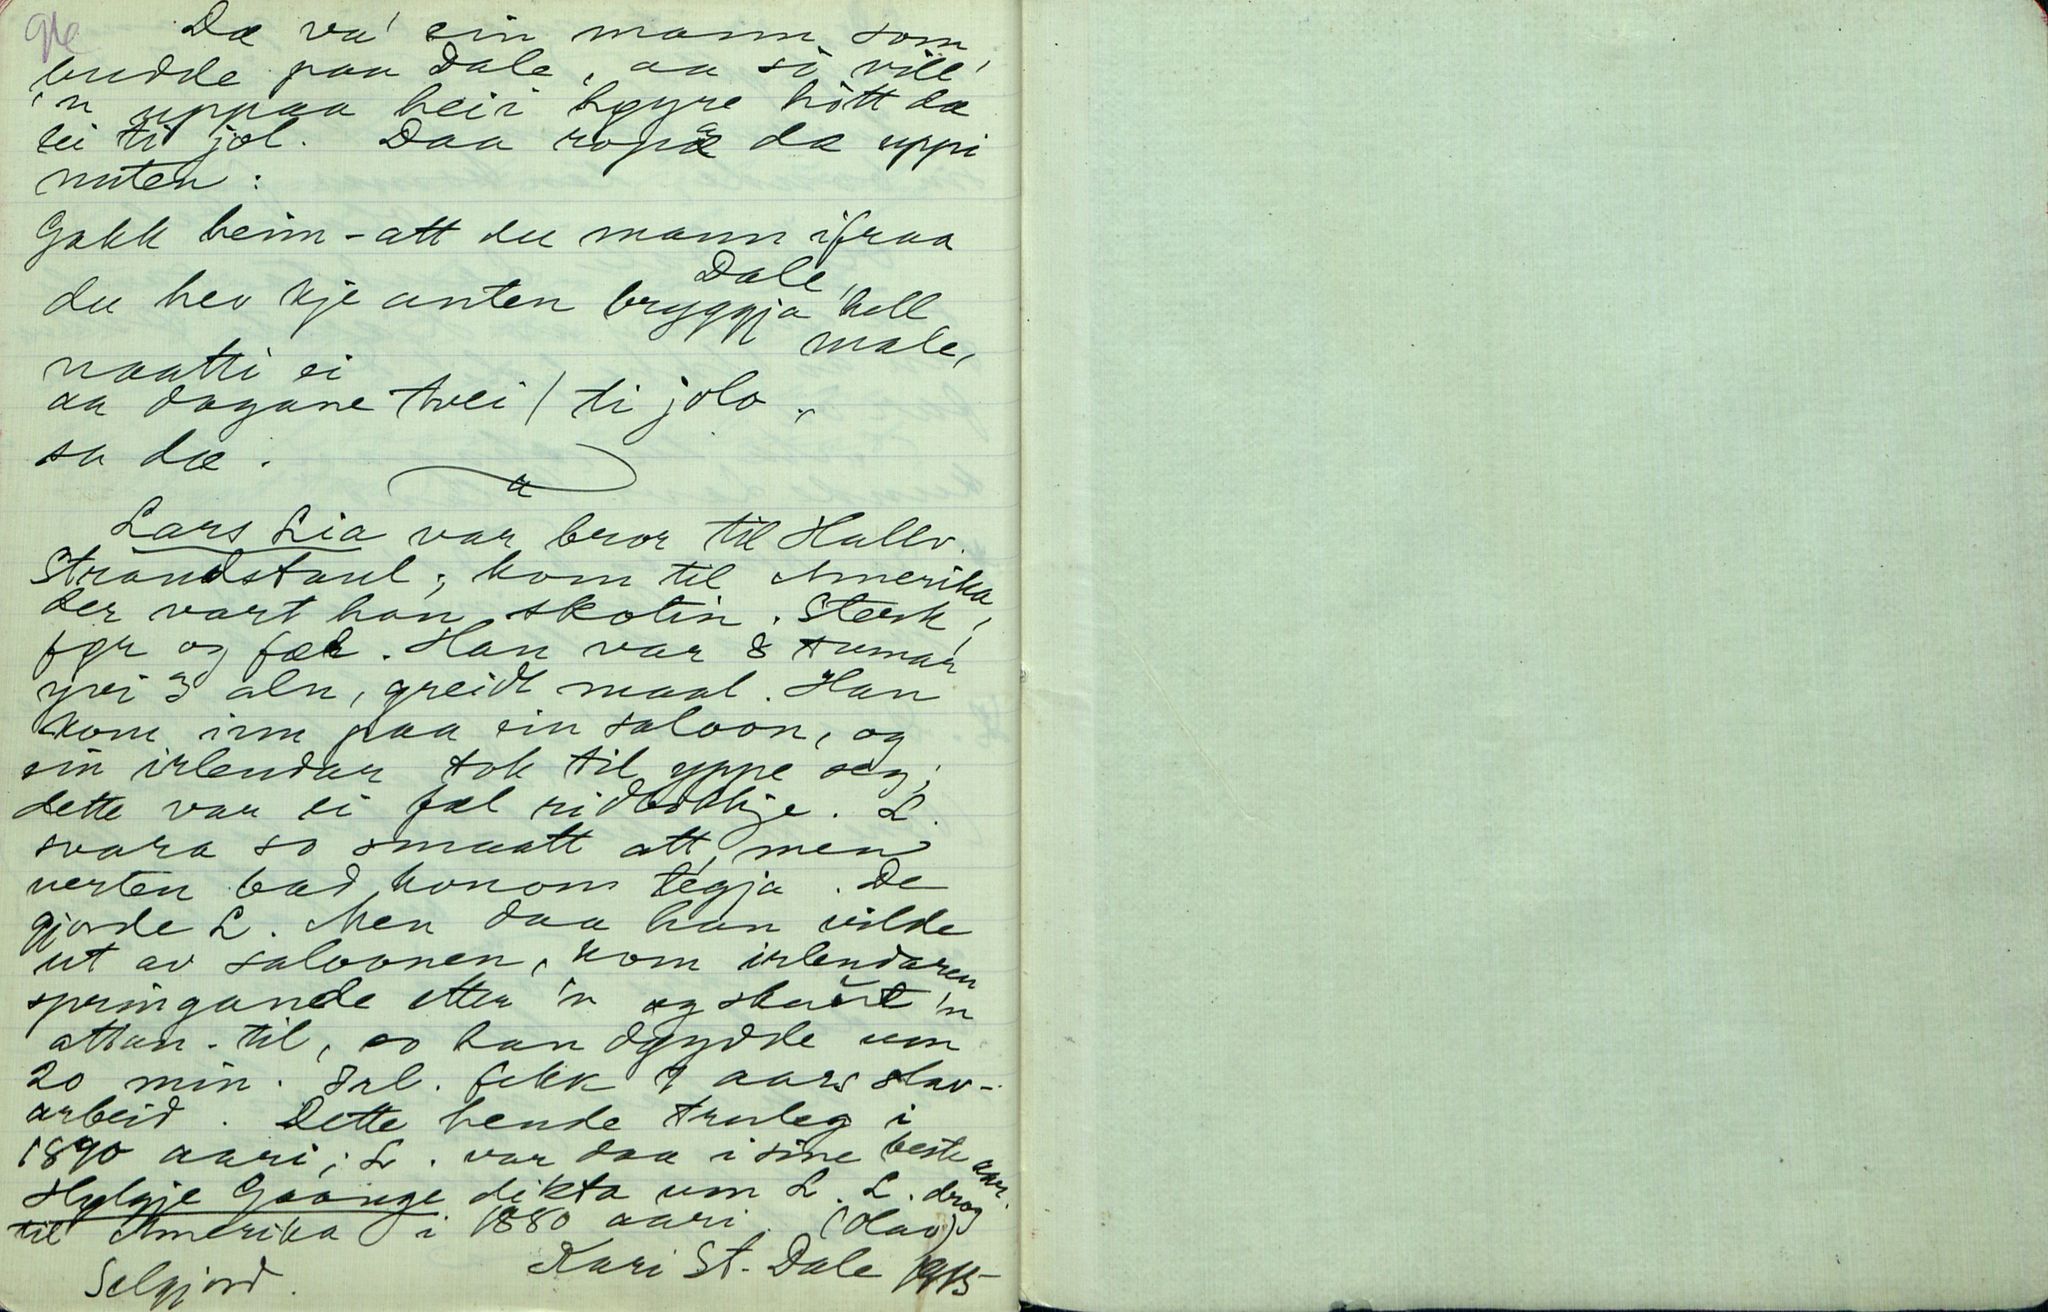 96
Dæ va' ein mann som
budde paa Dale, aa så vill'
'n uppaa heii køyre hött dæ
lei ti jol. Daa ropa dæ uppi
nuten:
Gakk heim-att du mann ifraa
Dale,
du hev kje anten bryggja hell
male,
naatti ei
aa dagane tvei / ti jolo,
sa dæ.
Lars Lia var bror til Hallv.
Strandstaul; kom til Amerika
der vart han skotin. Sterk,
før og fæl. Han var 8 tumar
yvi 3 aln, greidt maal. Han
kom inn paa ein saloon, og
ein irlendar tok til yppe seg;
dette var ei fæl
svara so smaatt att, men
verten bad honom tegja. De
gjorde L. Men daa han vilde
ut av saloonen, kom irlendaren
springande etter 'n og skaut 'n
attan-til, so han døydde um
20 min. Irl. fekk 9 aars slav-
arbeid. Dette hende truleg i
1890 aari; L. var daa i sine beste aar.
Hylgje Gaånge dikta um L. L. drog
til Amerika i 1880 aari. (Olav)
Kari St. Dale 1915
Selgjord.